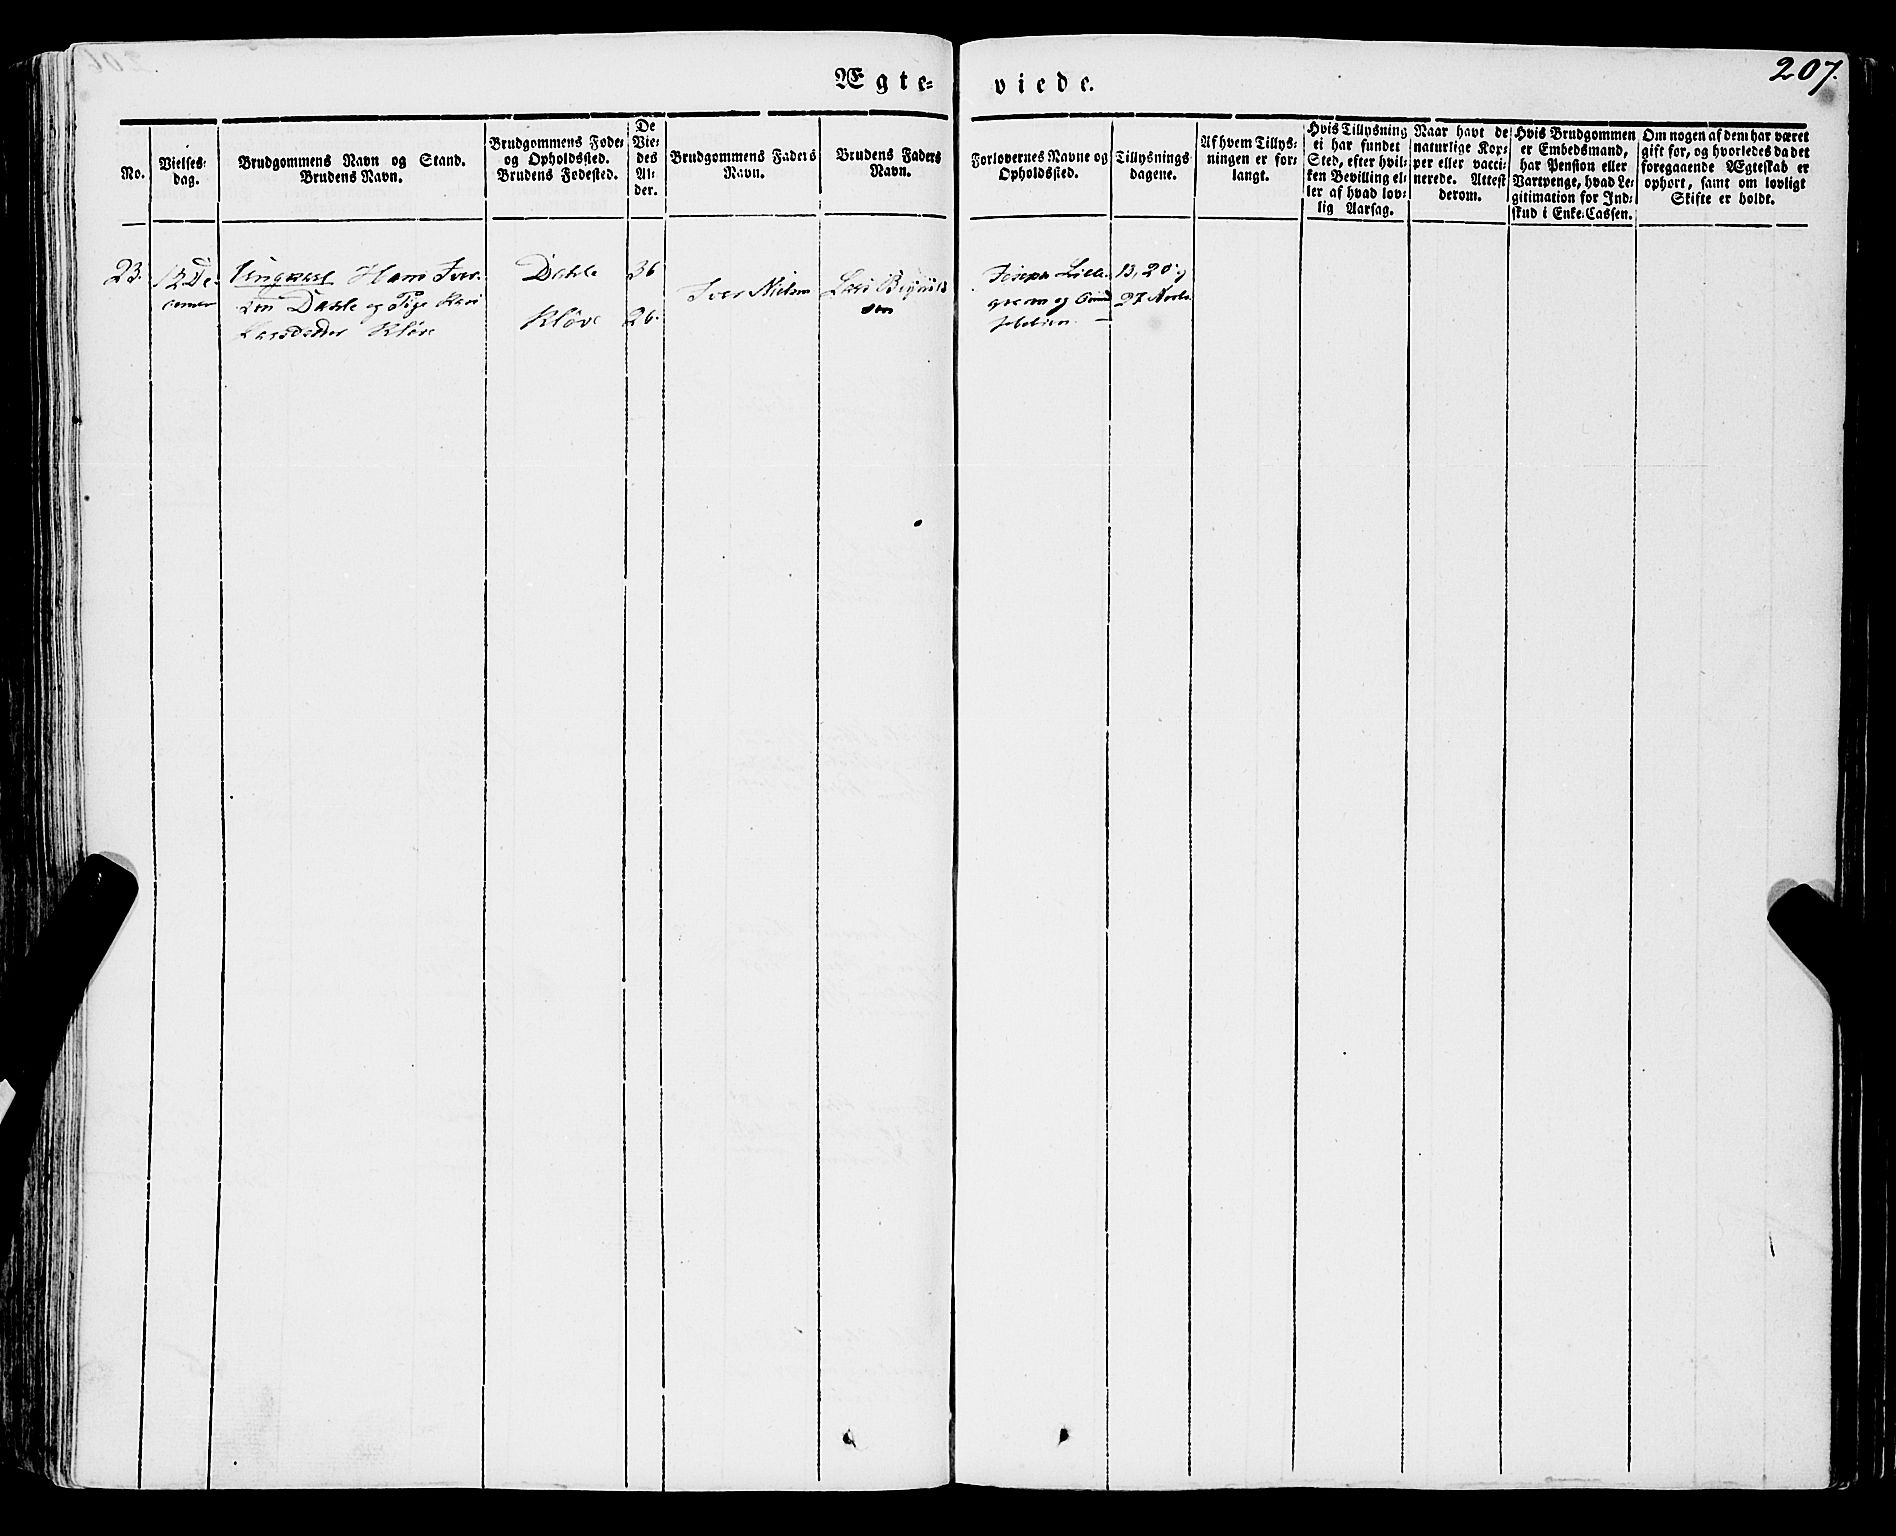 Ægte=
viede.
207.
No.
Vielses=
dag.
Brudgommens Navn og Stand.
Brudens Navn.
Brudgommens Føde=
og Opholdssted.
Brudens Fødested.
De
Vie=
des
Al=
der.
Brudgommens Faders
Navn.
Brudens Faders
Navn.
Forlovernes Navne og
Opholdssted.
Tillysnings
dagene.
Af hvem Tillys=
ningen er for=
langt.
Hvis Tillysning
ei har fundet
Sted, efter hvil=
ken Bevilling el=
ler af hvad lov=
lig Aarsag.
Naar havt de
naturlige Kop=
per eller vacci=
nerede. Attest
derom.
Hvis Brudgommen
er Embedsmand,
har Pension eller
Vartpenge, hvad Le=
gitimation for Ind=
skud i Enke=Cassen.
Om nogen af dem har været
gift før, og hvorledes da det
foregaaende Ægteskab er
ophørt, samt om lovligt
Skifte er holdt.
23.
12 De-
cember
Ungkarl Hans Iver-
sen Dahle og Pige Kari
Larsdatter Kløve
Dahle
Kløve
36
26
Iver Nielsen
Lars Brynils
sen
Joseph Lille-
13, 20 og
27 Novbr.